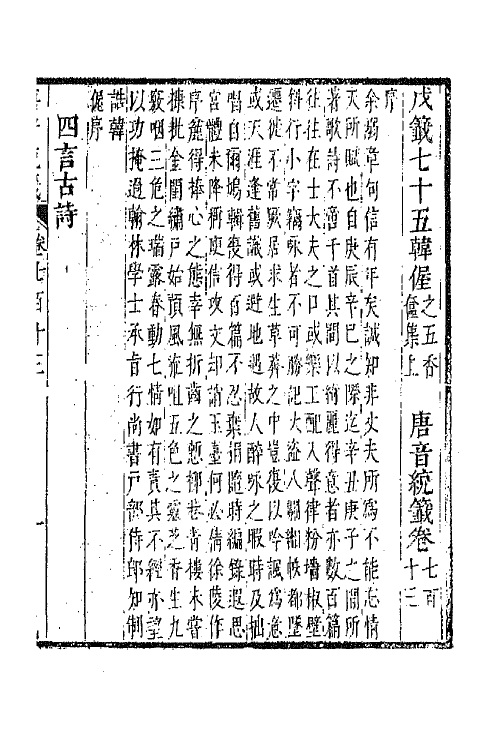 戊籤七十五韓偓之五香奩集上　唐音統籤卷七百十三
序
余溺章句信有年矣誠知非丈夫所爲不能忘情
天所賦也自庚辰辛巳之際迄辛丑庚子之間所
著歌詩不啻千首其間以綺麗得意者亦數百篇
往往在士大夫之口或樂工配入聲律粉墻椒壁
斜行小字竊咏者不可勝記大盜入關緗帙都墜
遷徙不常厥居求生草莽之中豈復以吟諷爲意
或天涯逢舊識或避地遇故人醉咏之暇時及拙
唱自爾鳩輯復得百篇不忍棄捐隨時編錄遐思
宮體未降稱庾信攻文却誚玉臺何必倩徐陵作
序麄得捧心之態幸無折齒之慙柳巷青樓未嘗
糠粃金閨繡戶始預風流咀五色之靈芝香生九
竅咽三危之瑞露春動七情如有責其不經亦望
以功掩過翰林學士承旨行尚書戶部侍郎知制
誥韓
偓序
四言古詩
卷七百十三
一